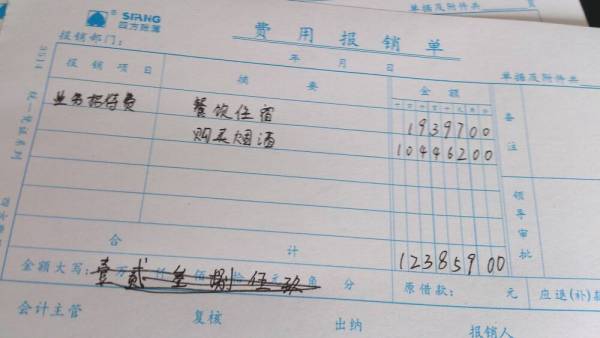 SIRANG
四方账簿
费用报销单
报销部门:
年 月 日
单据及附件共
报销项目 摘要 金额 备注
业务招待费 餐饮住宿 1939700
购买烟酒 10446200
领导审批
合计 12385900
金额大写: 壹万贰 叁 捌 伍 玖 角 分 原借款: 元 应退(补)款
会计主管 复核 出纳 报销人
3514 统一凭证系列